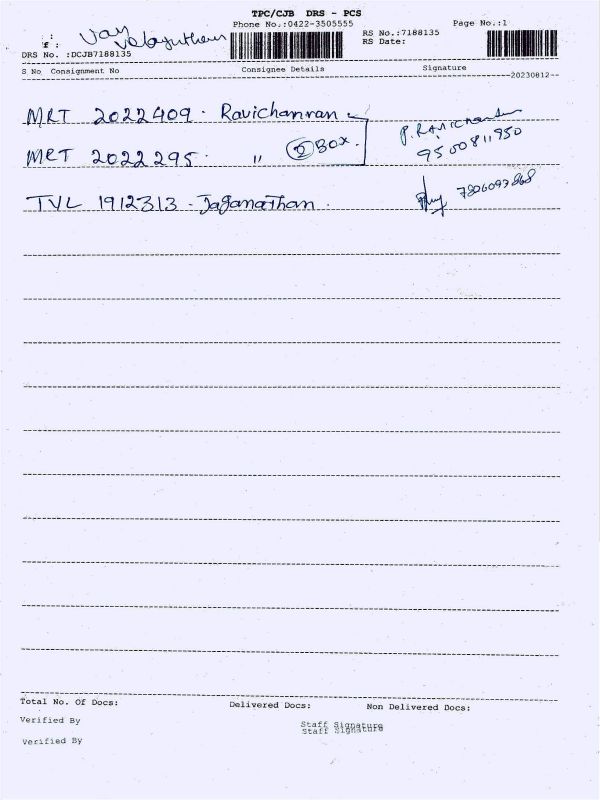 TPC/CJB DRS - PCS
Phone No.:0422-3505555
Page No.:1
RS No.:7188135
RS Date:
: :
f :
Van
Velayutham
DRS No. :DCJB7188135
S No Consignment No Consignee Details Signature
20230812
MRT 2022409. Ravichanran
P. RAVICHANDRAN
9500811950
MRT 2022295. 〃 ② Box.
TVL 1912313 - Jaganathan.
7806093868
Total No. Of Docs: Delivered Docs: Non Delivered Docs:
Verified By
Staff Signature
Staff Signature
Verified By